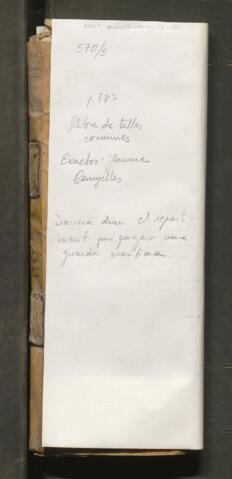 570/5
1.787
Llibre de talles
comunes
Exactor: Jaume
Canyelles
Darrera duu el repart-
iment per pagar una
guarda marítima